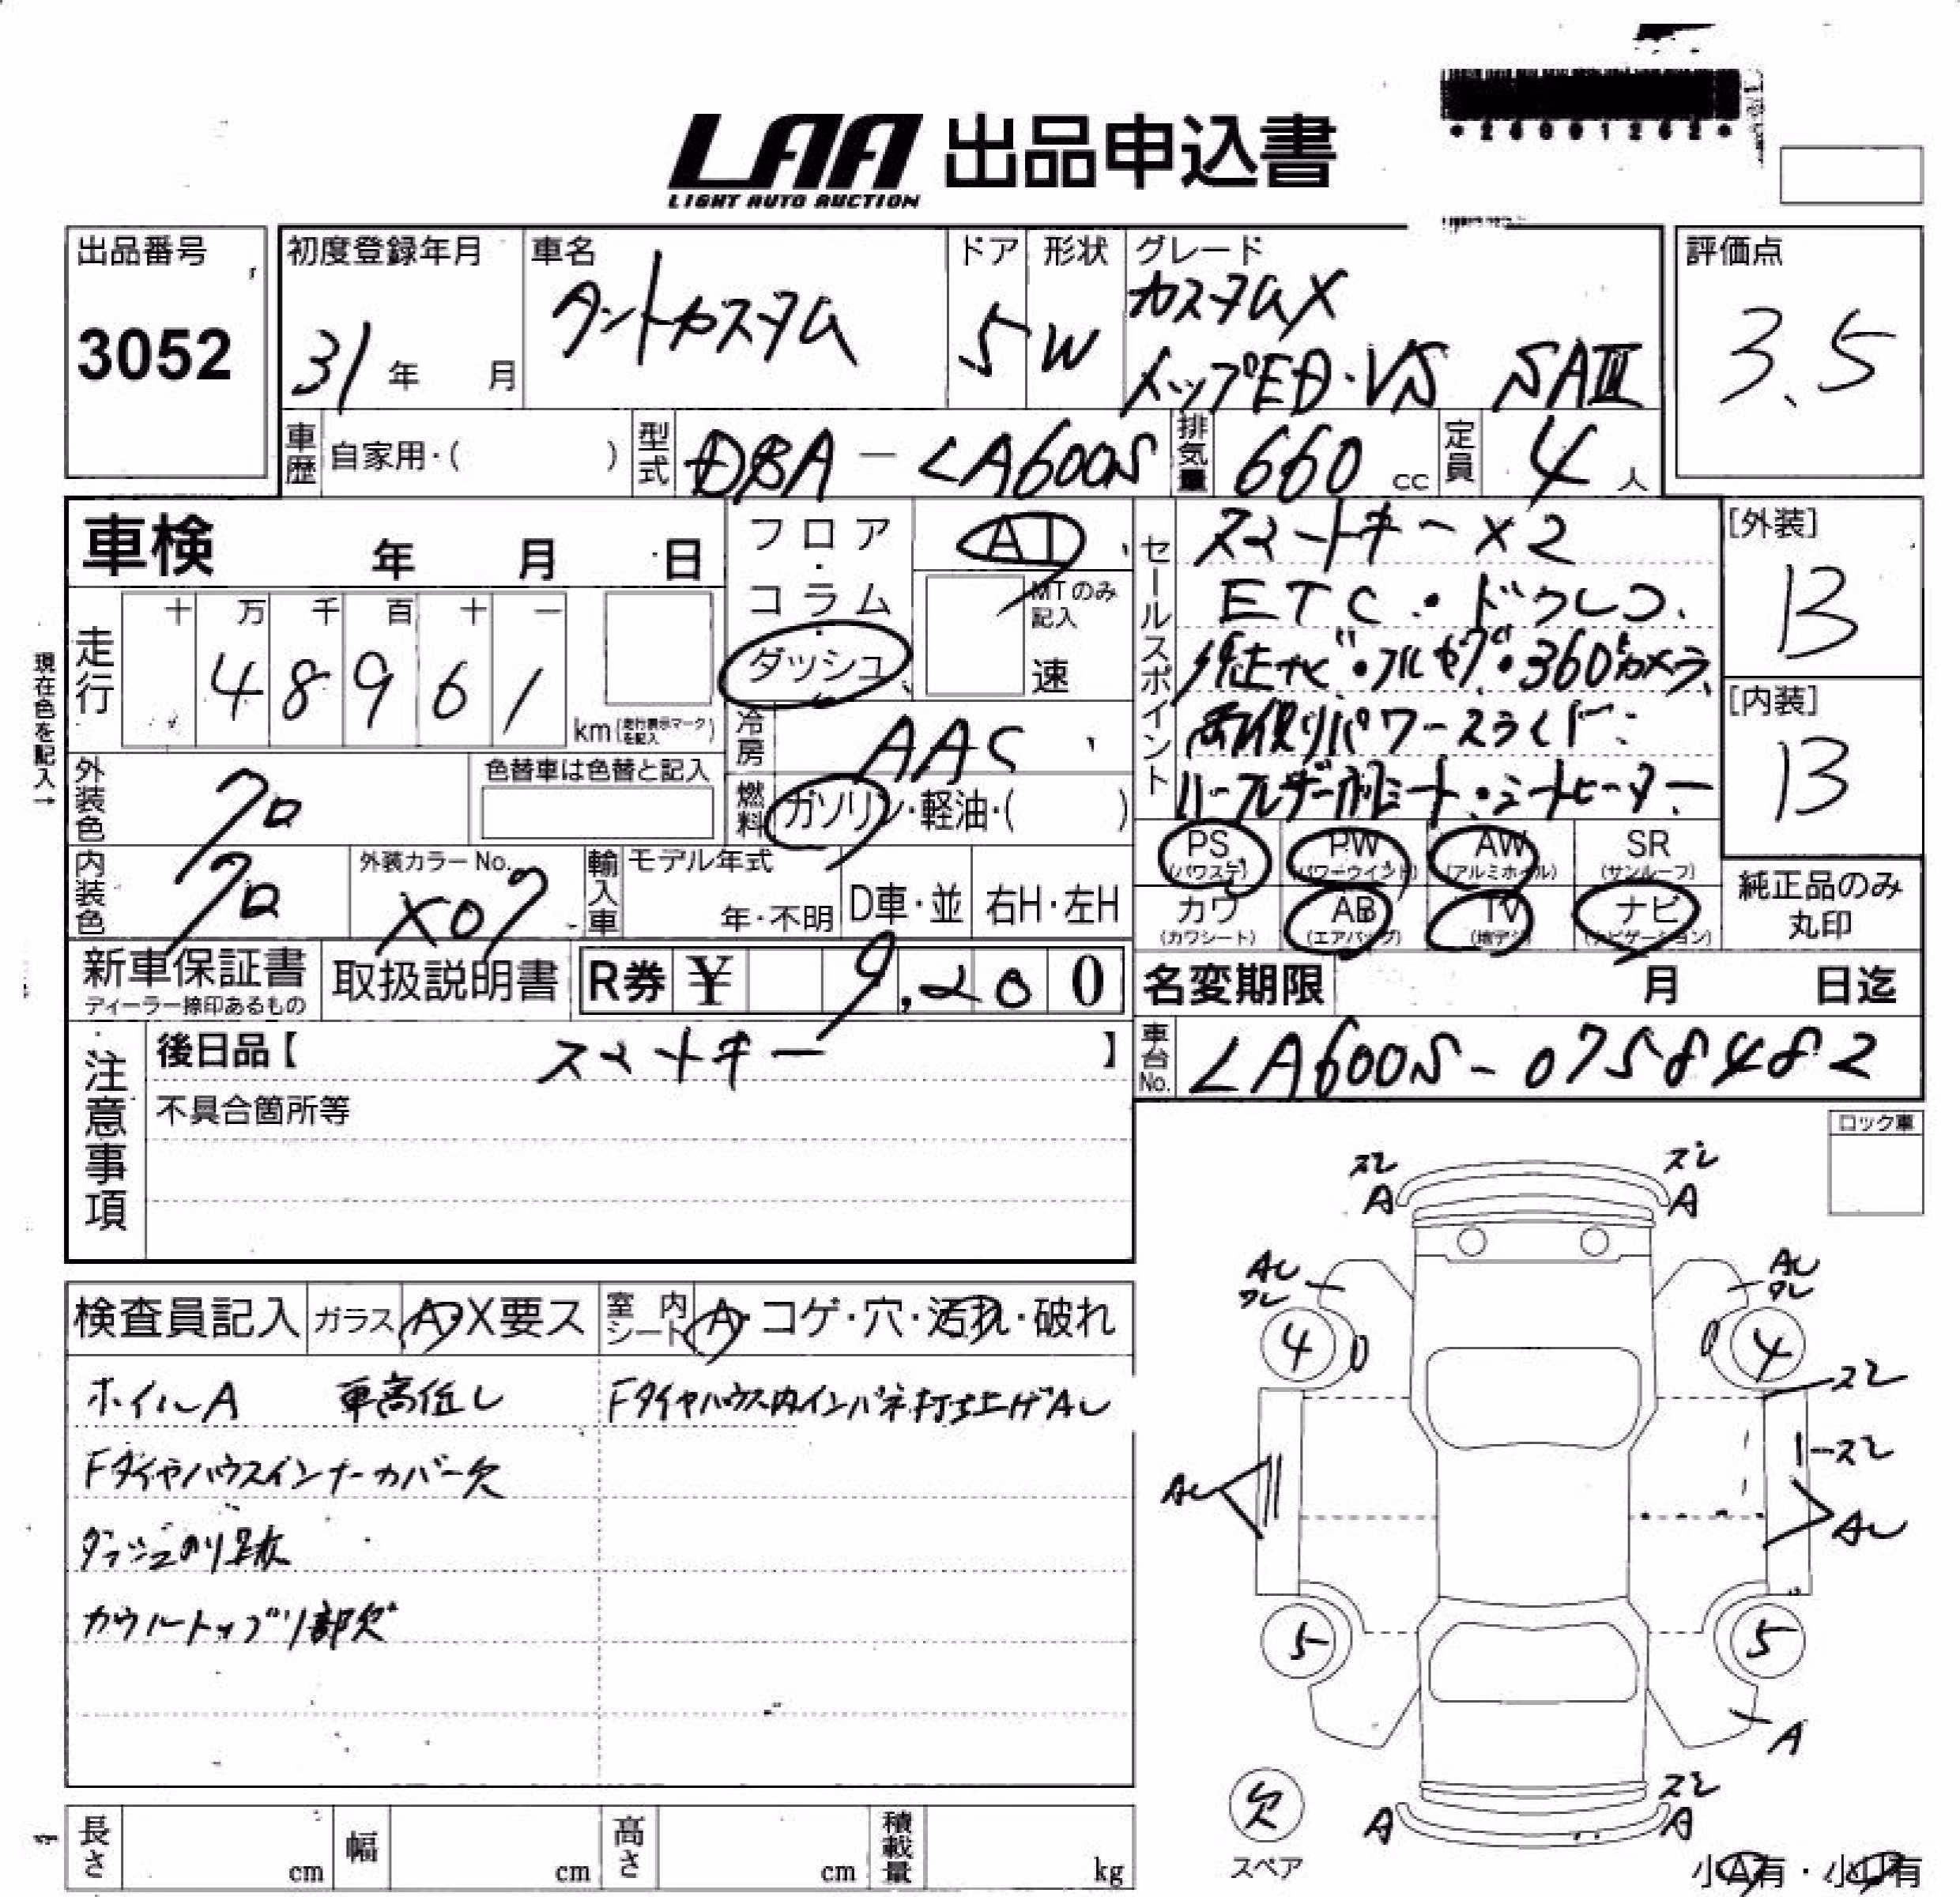 LAA 出品申込書
LIGHT AUTO AUCTION
出品番号
3052
初度登録年月
31年 月
車名
タントカスタム
ドア
5
形状
W
グレード
カスタムX
トップED・VS SAⅢ
評価点
3.5
車歴 自家用・( )
型式 DBA-LA600S
排気量 660 cc
定員 4 人
車検 年 月 日
フロア・コラム・ダッシュ
AT
MTのみ記入
速
現在色を記入→
走行
十 万 千 百 十 一
4 8 9 6 1
km(走行表示マークを記入)
冷房 AAC
燃料 ガソリン・軽油・( )
外装色 クロ
色替車は色替と記入
内装色 クロ
外装カラーNo. X07
輸入車 モデル年式
年・不明
D車・並
右H・左H
セールスポイント
スマートキー×2
ETC・ドラレコ
純正ナビ・フルセグ・360°カメラ
両側パワースライド
ハーフレザー調シート・シートヒーター
[外装]
B
[内装]
B
PS (パワステ)
PW (パワーウインド)
AW (アルミホイル)
SR (サンルーフ)
カワ (カワシート)
AB (エアバッグ)
TV (地デジ)
ナビ (ナビゲーション)
純正品のみ丸印
新車保証書
ディーラー捺印あるもの
取扱説明書
R券 ¥ 9,200
名変期限 月 日迄
車台No. LA600S-0758482
注意事項
後日品【 スマートキー 】
不具合箇所等
ロック車
検査員記入
ガラス A・X要ス
室内シート A・コゲ・穴・汚れ・破れ
ホイルA 車高低し
Fタイヤハウス内インパネ打ち上げAU
Fタイヤハウスインナーカバー欠
ダッシュのり跡
カウルトップ1部欠
スレ A
スレ A
AU ワレ
AU ワレ
4
4
スレ
スレ
AU
AU
5
5
A
スレ
A
A
欠
スペア
小A有・小U有
長さ cm
幅 cm
高さ cm
積載量 kg